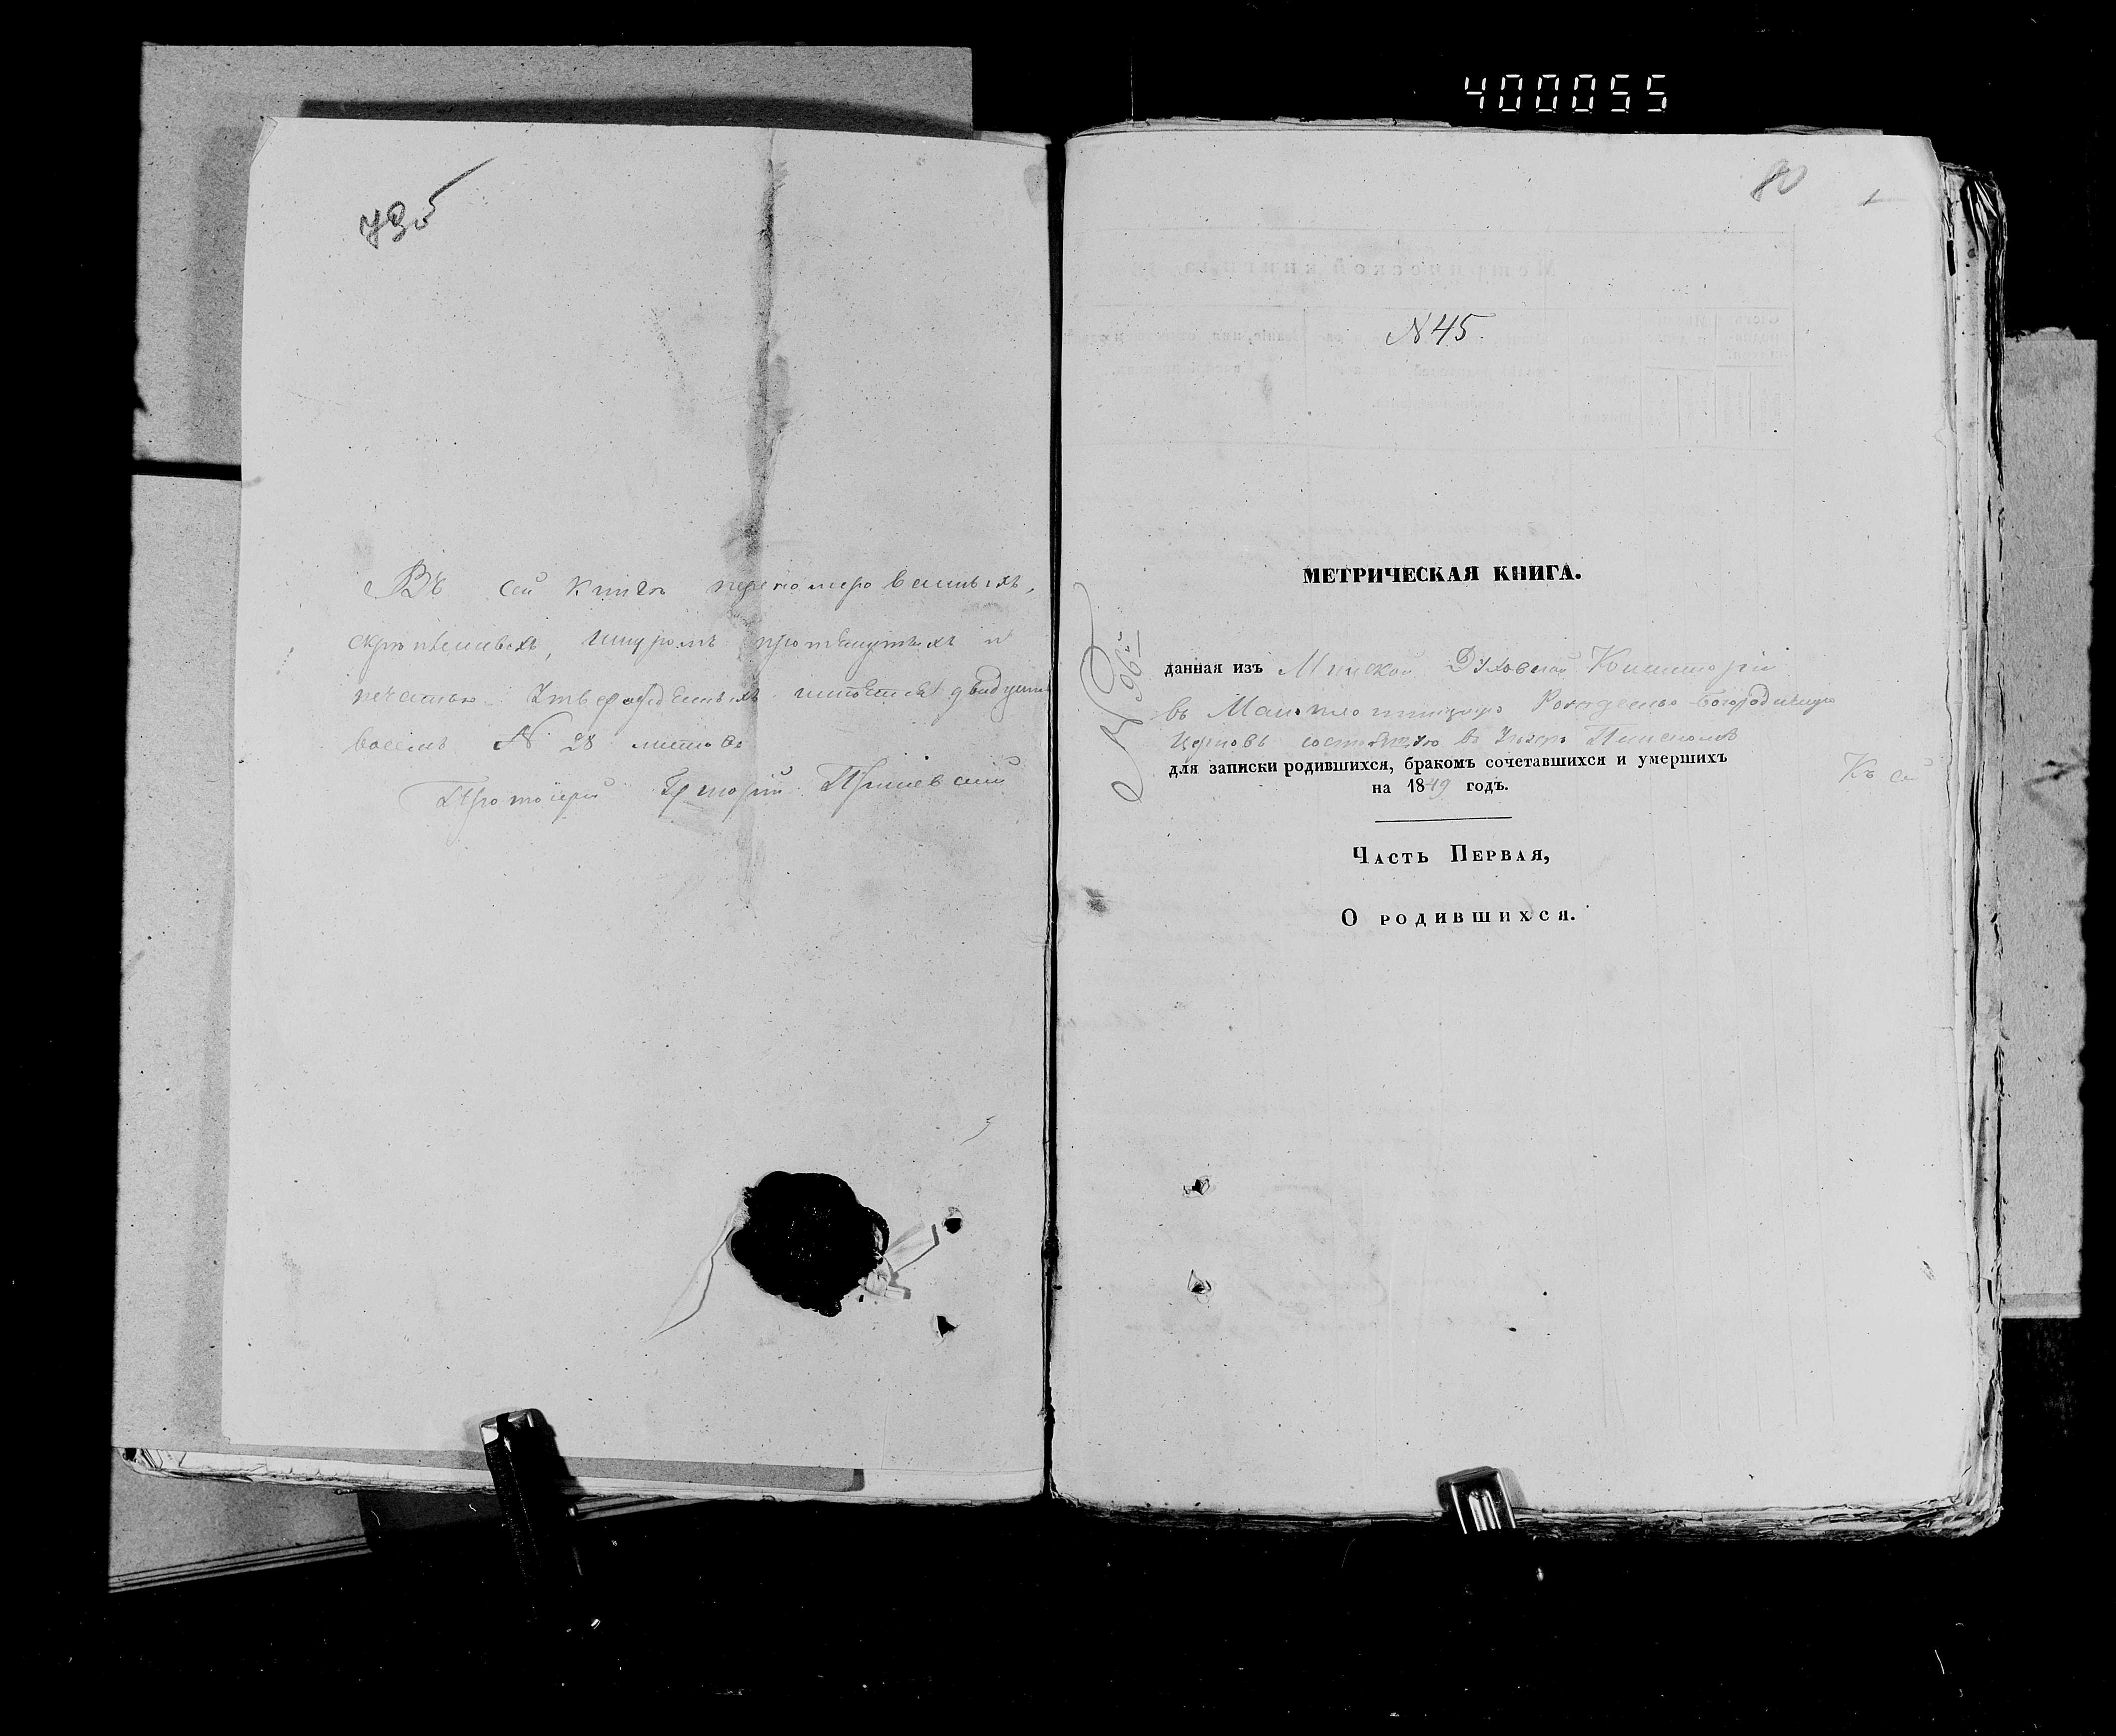 400055
795
Въ сей книгѣ переномерованныхъ,
скрѣпленныхъ, шнуромъ протянутыхъ и
печатью утвержденныхъ имѣется двадцать
восемь № 28 листовъ
Протоіерей Григорій
80
1
№ 45.
МЕТРИЧЕСКАЯ КНИГА.
данная изъ Минской Духовной Консисторіи
въ Рождество-Богородичную
Церковь состоящую въ уѣздѣ Пинскомъ
для записки родившихся, бракомъ сочетавшихся и умершихъ
на 1849 годъ.
Часть Первая,
О родившихся.
Къ сей